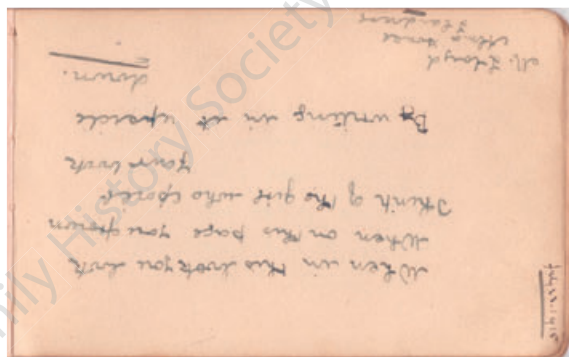 When in this book you look
When on this page you frown
Think of the girl who spoiled
your book
By writing in it upside
down.
mily History Society